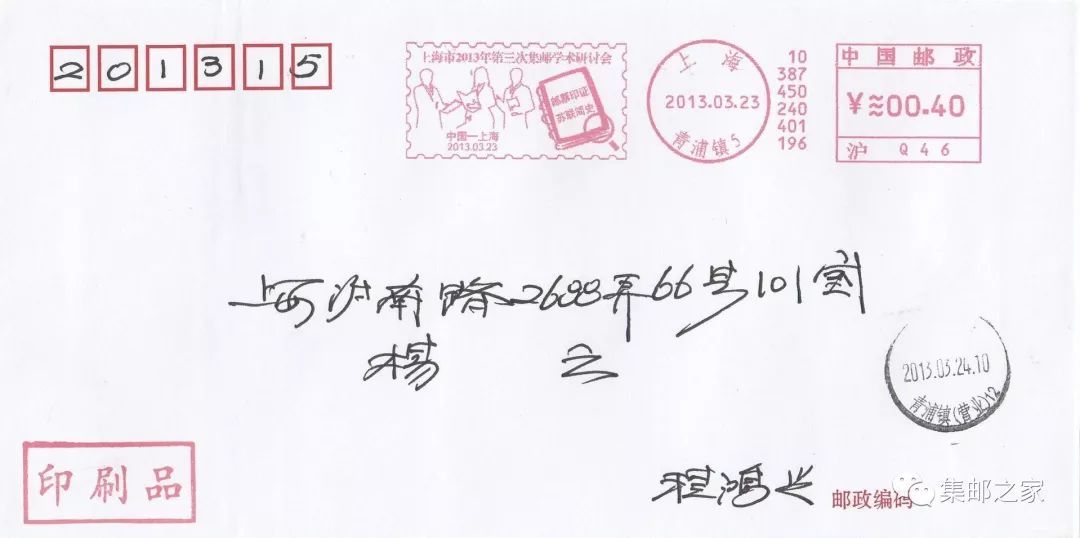 201315
上海市2013年第三次集邮学术研讨会
邮票印证
苏联简史
中国—上海
2013.03.23
上海
2013.03.23
青浦镇5
10
387
450
240
401
196
中国邮政
¥≈00.40
沪 Q46
上海沪南路2688弄66号101室
杨 云
2013.03.24.10
青浦镇(营业)12
印刷品
程鸿兴
邮政编码
集邮之家